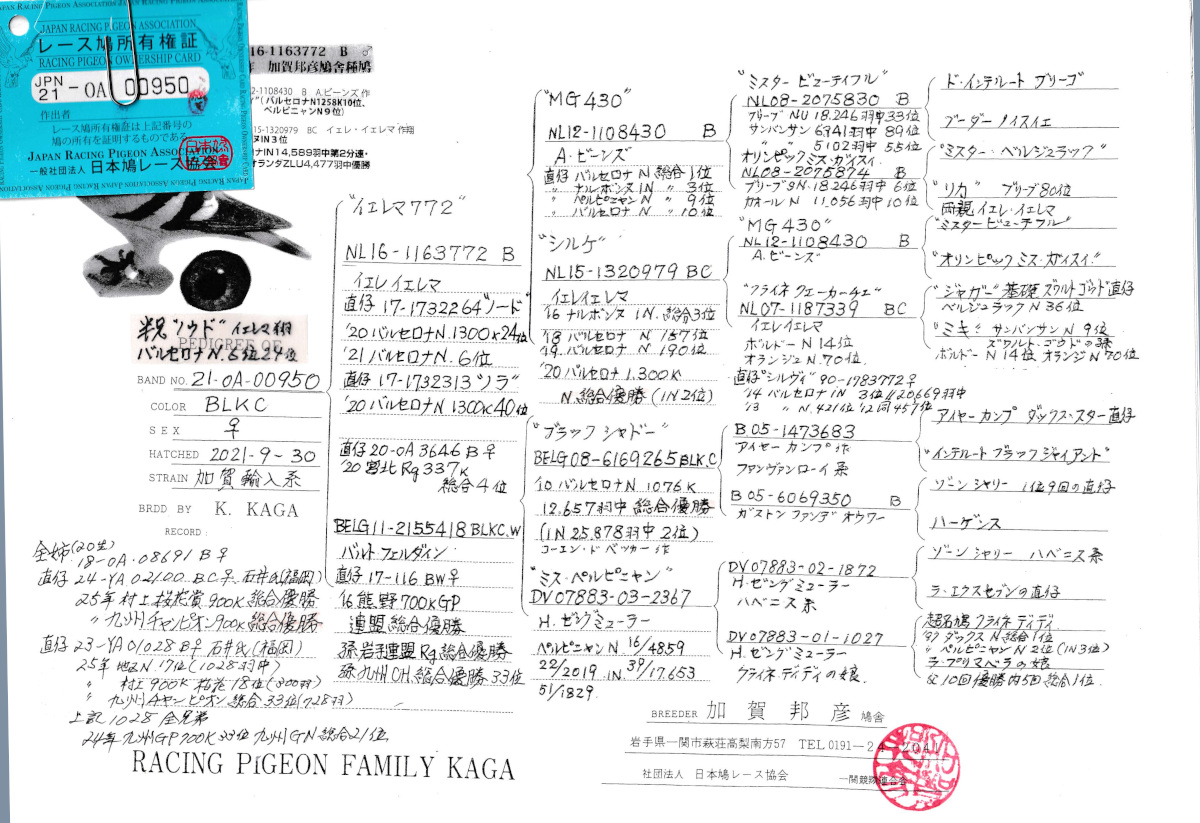 JAPAN RACING PIGEON ASSOCIATION
レース鳩所有権証
RACING PIGEON OWNERSHIP CARD
JPN
21 -OA 00950
作出者
レース鳩所有権証は上記番号の
鳩の所有を証明するものである
JAPAN RACING PIGEON ASSOCIATION
一般社団法人 日本鳩レース協会
16-1163772 B ♂
加賀邦彦鳩舎種鳩
2-1108430 B A.ビーンズ作
(バルセロナN1258K10位、
ペルピニャンN9位)
15-1320979 BC イエレ・イエレマ作翔
ヌIN3位
ナIN14,589羽中第2分速・
オランダZLU4,477羽中優勝
半兄"ノウド"イエレマ翔
バルセロナN.6位24位
PEDIGREE OF
BAND NO. 21-OA-00950
COLOR BLKC
SEX ♀
HATCHED 2021-9-30
STRAIN 加賀輸入系
BRDD BY K. KAGA
RECORD:
全姉(20生)
18-OA.08691 B♀
直仔 24-YA 02100 BC♀ 石井氏(福岡)
25年 村上桜花賞900K総合優勝
〃 九州チャンピオン900K総合優勝
直仔 23-YA 01028 B♀ 石井氏(福岡)
25年 地区N17位(1028羽中)
〃 村上900K桜花18位(300羽)
〃 九州チャンピオン総合33位(728羽)
上記1028全兄弟
24年九州GP700K33位九州GN総合21位
RACING PiGEON FAMILY KAGA
"イエレマ772"
NL16-1163772 B
イエレイエレマ
直仔17-1732264"ノード"
'20バルセロナN.1300K24位
'21バルセロナN.6位
直仔17-1732313"ノラ"
'20バルセロナN1300K40位
直仔20-OA3646B♀
'20宮北Rg337K
総合4位
BELG11-2155418BLKC.W
バルト・フェルダイン
直仔17-116BW♀
'16熊野700KGP
連盟総合優勝
孫岩手連盟Rg総合優勝
孫九州CH.総合優勝33位
"MG430"
NL12-1108430 B
A.ビーンズ
直仔バルセロナN総合1位
〃 ナルボンヌIN 〃 3位
〃 ペルピニャンN 〃 9位
〃 バルセロナN 〃 10位
"シルケ"
NL15-1320979 BC
イエレイエレマ
'16ナルボンヌIN.総合3位
'18バルセロナN157位
'19バルセロナN190位
'20バルセロナ1.300K
N.総合優勝(IN2位)
"ブラックシャドー"
BELG08-6169265BLK.C
'10バルセロナN1076K
12.657羽中総合優勝
(IN25.878羽中2位)
コーエン・ド・ベッカー作
"ミス・ペルピニャン"
DV07883-03-2367
H.ゼングミューラー
ペルピニャンN 16/4859
22/2019 .IN.39/17.653
51/1829.
"ミスタービューティフル"
NL08-2075830 B
ブリーブNU18.246羽中33位
サンバンサン6741羽中89位
〃 〃 5102羽中55位
オリンピックミス・ガイスイ.
NL08-2075874 B
ブリーブSN.18.246羽中6位
カオールN 11.056羽中10位
MG430"
NL12-1108430 B
A.ビーンズ
"クライネクェーカーチェ"
NL07-1187339 BC
イエレイエレマ
ボルドーN14位
オランジュN.70位.
直仔"シルヴィ"90-1783772♀
'14バルセロナiN 3位/20669羽中
'13 〃 N.421位'12同457位
B05-1473683
アイヤーカンプ作
ファンヴァンローイ系
B05-6069350 B
ガストンファンデオウワー
DV07883-02-1872
H.ゼングミューラー
ハベニス系
DV07883-01-1027
H.ゼングミラー
クライネ・ディディの娘.
ド・インテルートブリーゴ
ブーダーノイスイエ
"ミスター・ベルジュラック"
"リカ" ブリーブ80位
両親イエレ・イエレマ
"ミスタービューチフル"
"オリンピックミス.ガイスイ."
"ジャガー"基礎ズワルトゴウド直仔
ベルジュラックN36位
"ミキ"サンバンサンN9位
ズワルト・ゴウドの孫
ボルドーN14位オランジN70位
アイヤーカンプダックス・スター直仔
"インテルートブラックジャイアント"
ゾーンシャリー 1位9回の直仔
ハーゲンス
ゾーンシャリー ハベニス系
ラ・エクスセブンの直仔
超名鳩クライネディディ
'97ダックスN総合1位
〃ペルピニャンN2位(IN3位)
ラ・プリマベラの娘
父10回優勝内5回総合1位.
BREEDER 加賀邦彦 鳩舎
岩手県一関市萩荘高梨南方57 TEL0191-24-2041
社団法人 日本鳩レース協会 一関競翔連合会